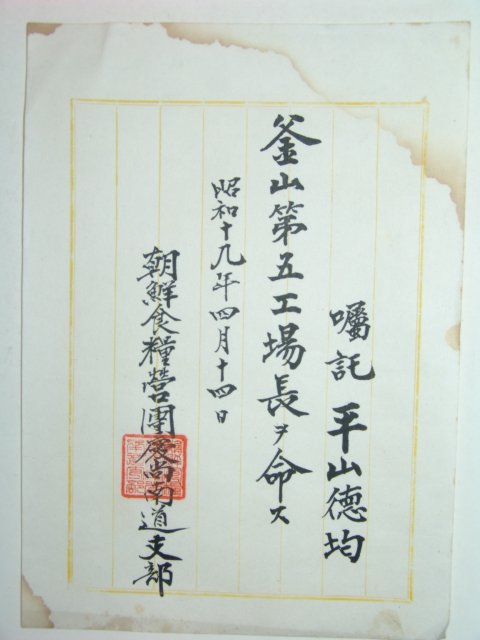 囑託 平山德均
釜山第五工場長ヲ命ス
昭和十九年四月十四日
朝鮮食糧營團慶尚南道支部